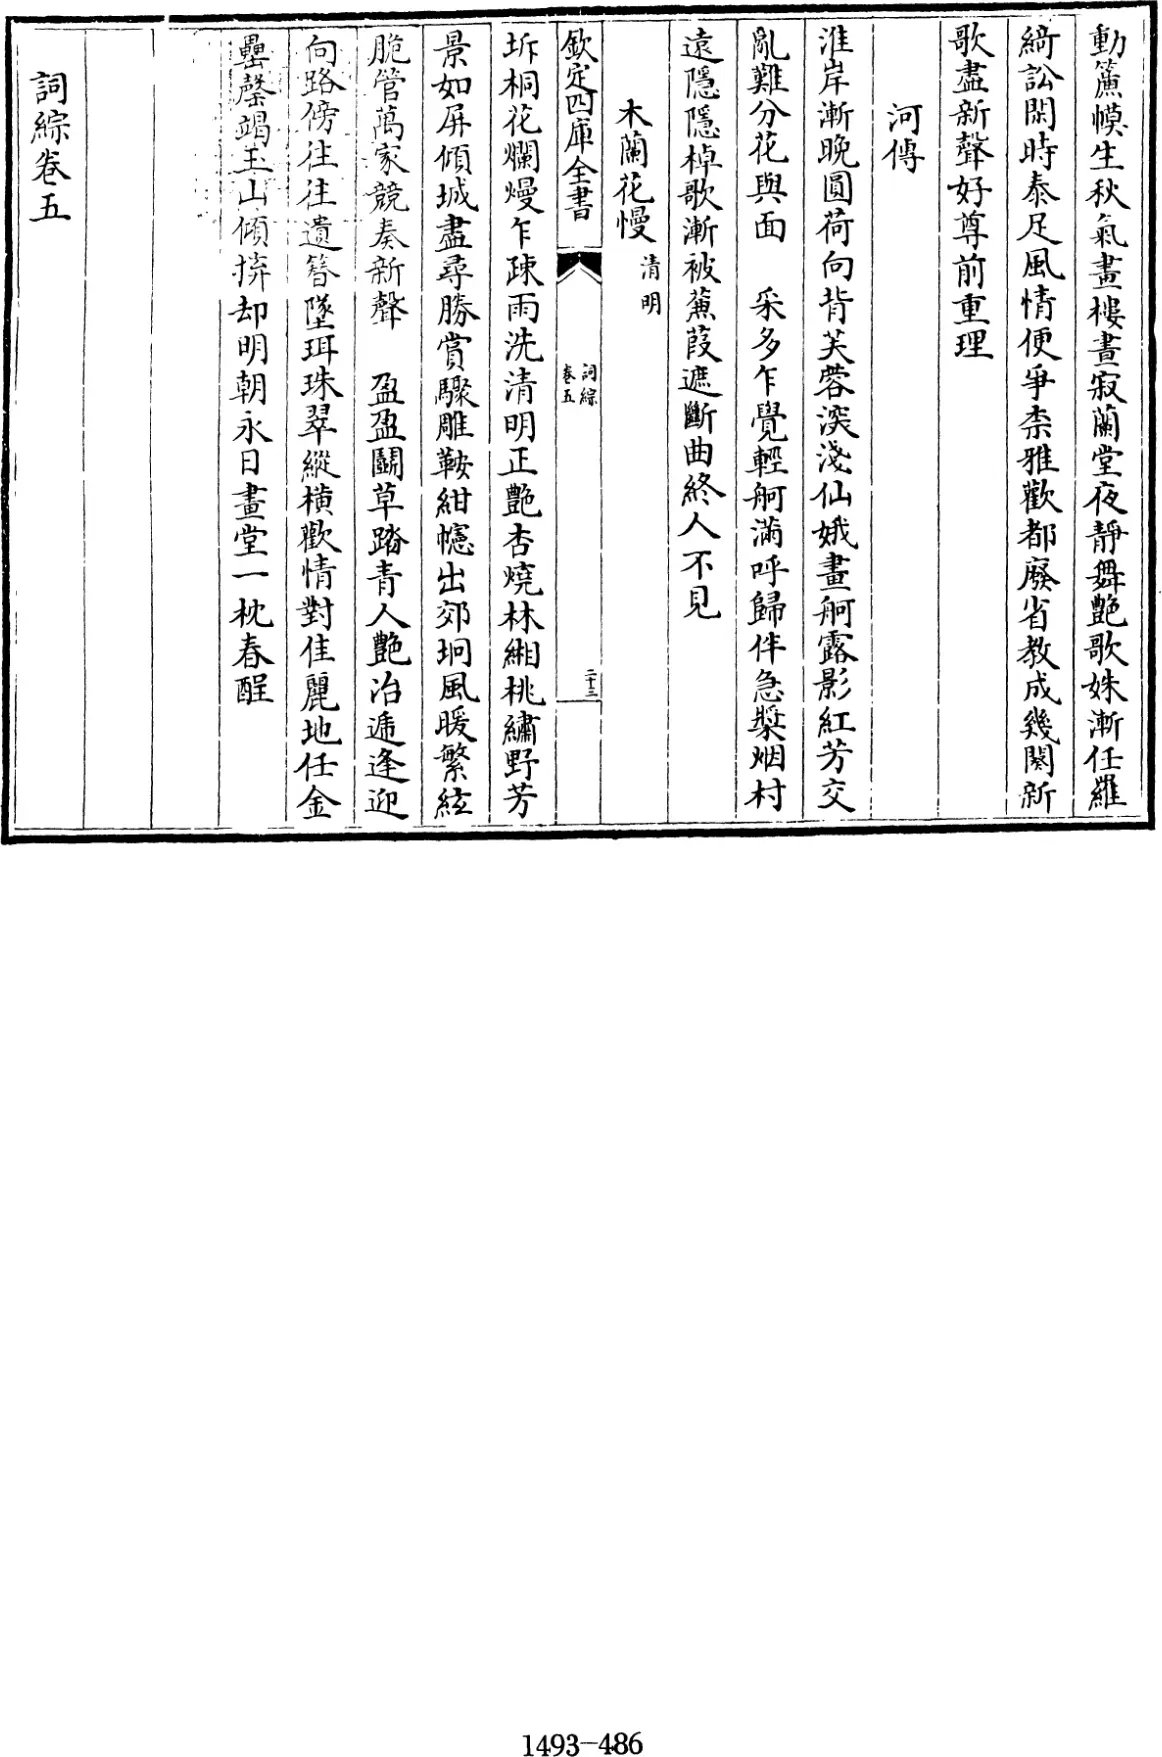 動簾幙生秋氣畫樓晝寂蘭堂夜靜舞艷歌姝漸任羅
綺訟閑時泰足風情便爭柰雅歡都廢省教成幾闋新
歌盡新聲好尊前重理
河傳
淮岸漸晚圓荷向背芙蓉深淺仙娥畫舸露影紅芳交
亂難分花與面　采多乍覺輕舸滿呼歸伴急槳烟村
遠隱隱棹歌漸被蒹葭遮斷曲終人不見
木蘭花慢清明
欽定四庫全書
詞綜
卷五
二十三
坼桐花爛熳乍疎雨洗清明正艷杏燒林緗桃繡野芳
景如屏傾城盡尋勝賞驟雕鞍紺幰出郊坰風暖繁絃
脆管萬家競奏新聲　盈盈鬬草踏青人艷冶遞逢迎
向路傍往往遺簪墜珥珠翠縱橫歡情對佳麗地任金
罍罄竭玉山傾拚却明朝永日畫堂一枕春酲
詞綜卷五
1493-486